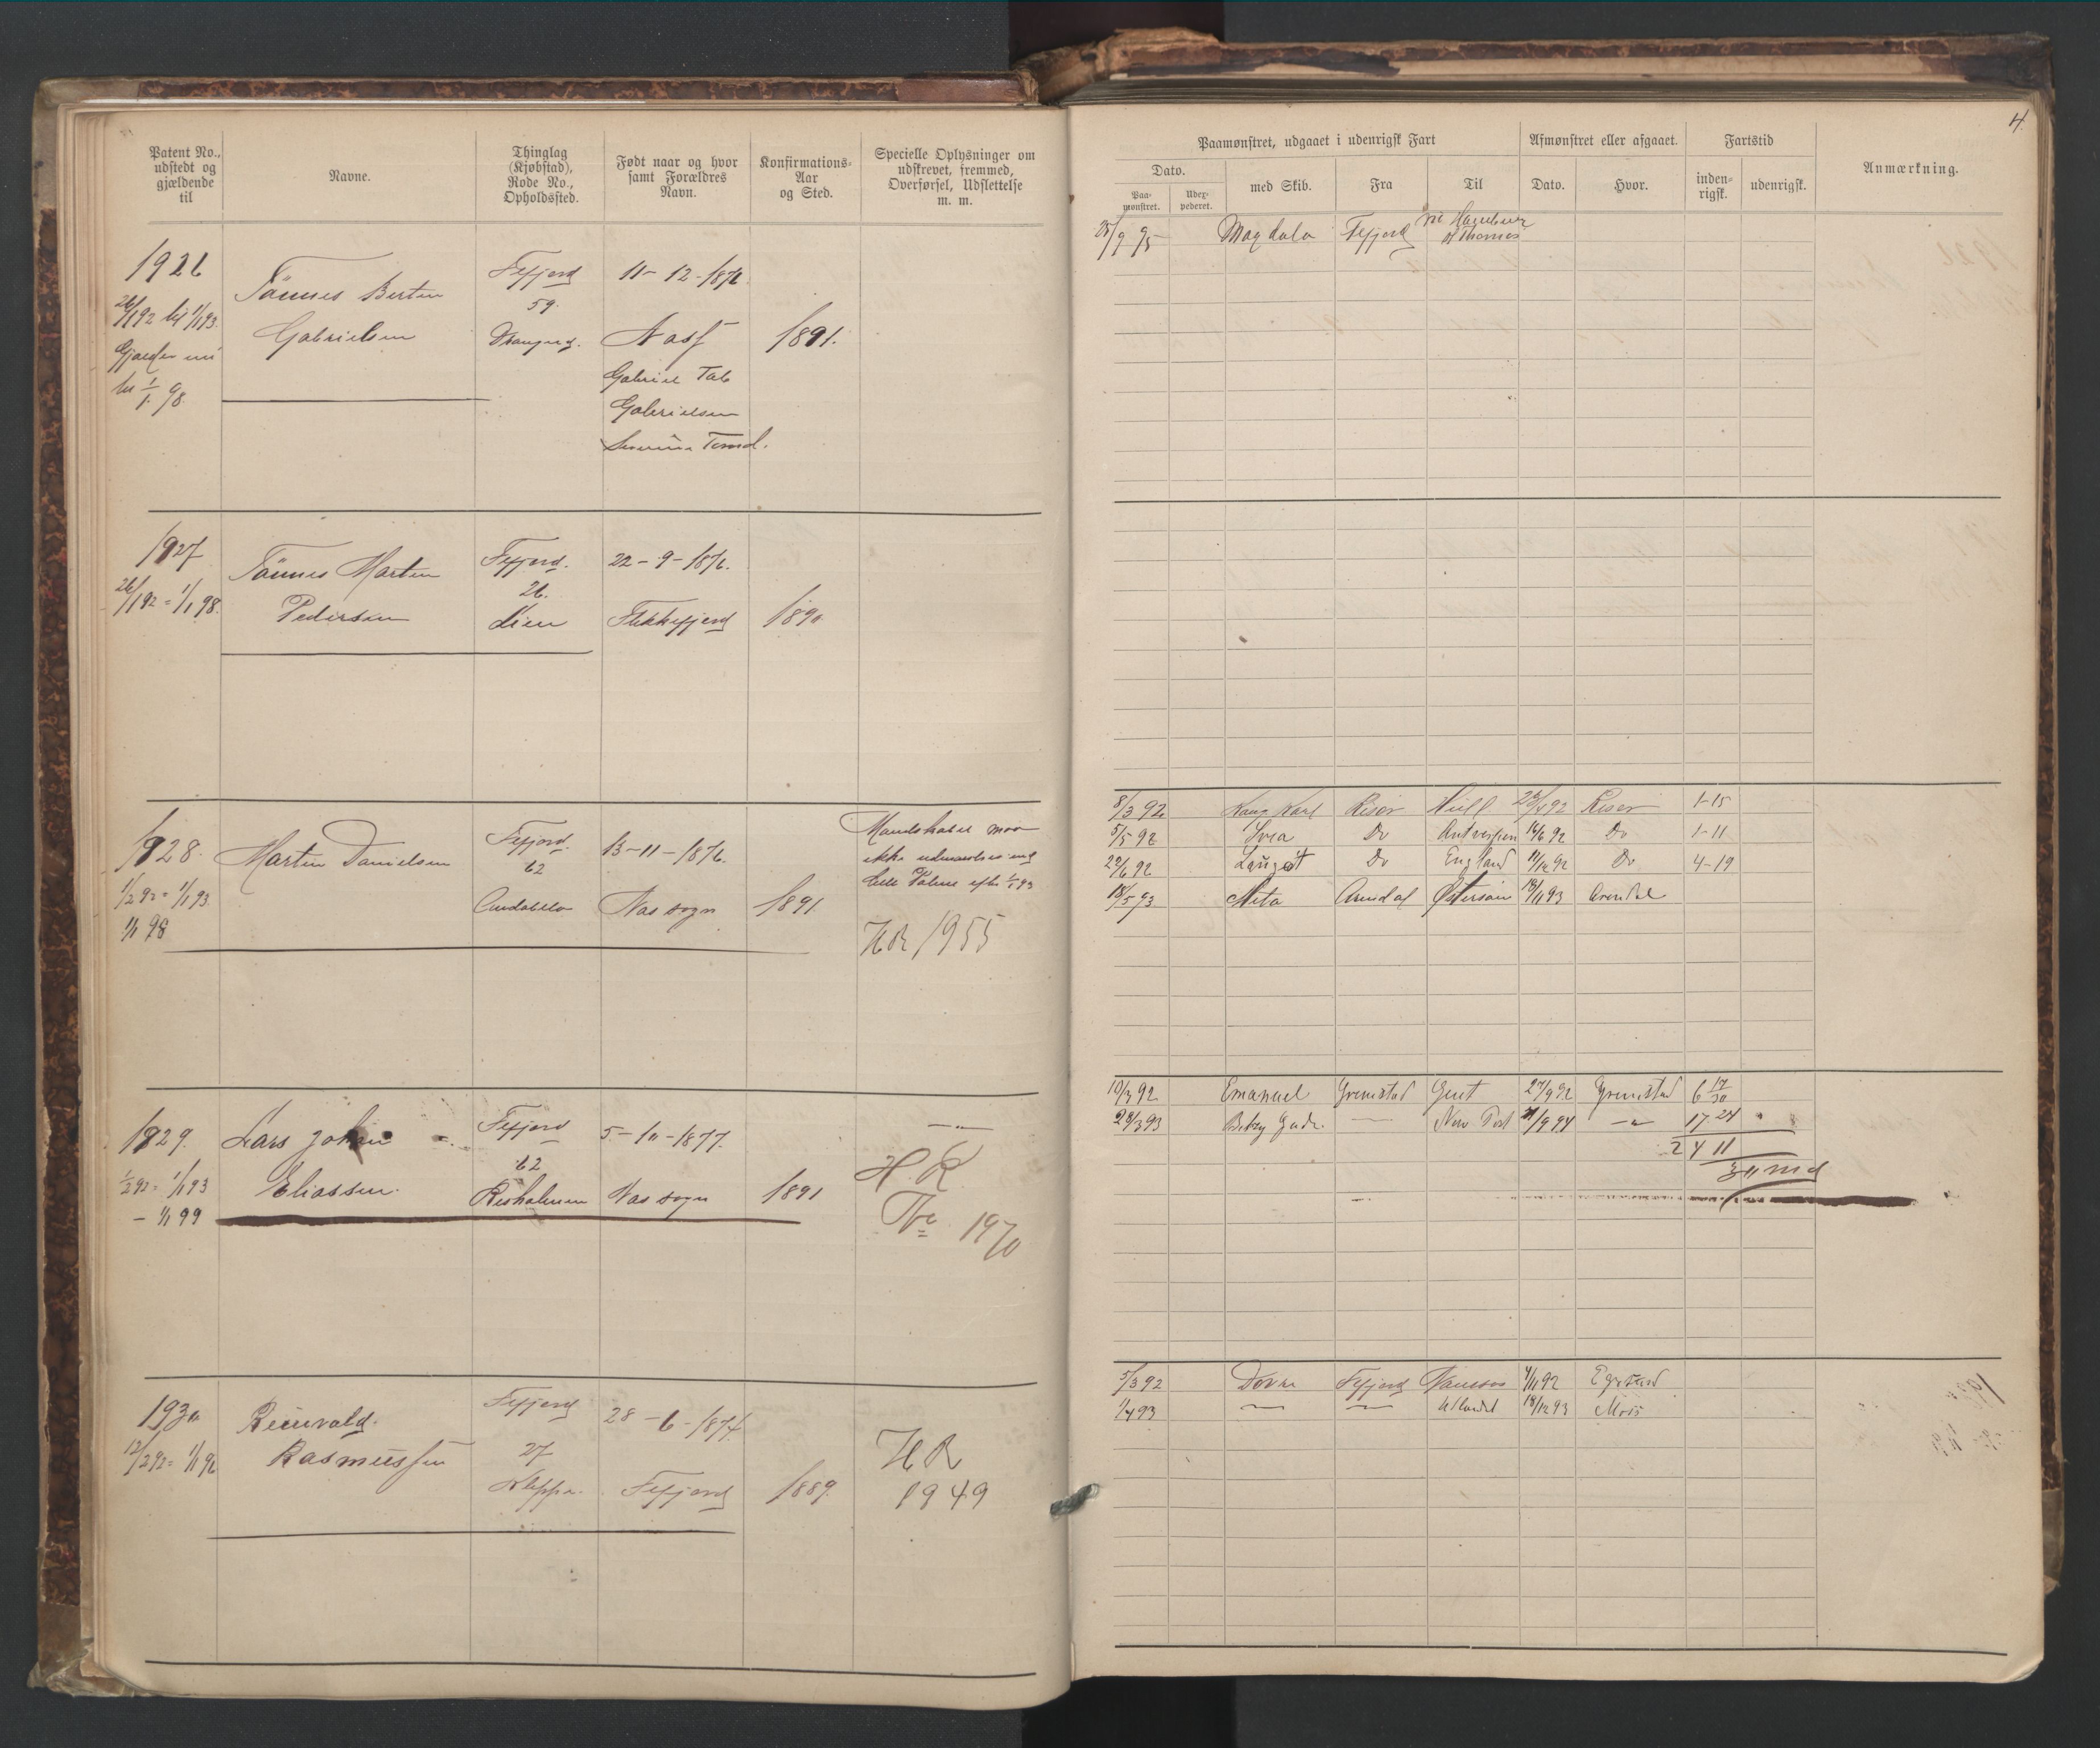 Patent No., udstedt og gjældende til
Navne.
Thinglag (Kjøbstad), Rode No., Opholdssted.
Født naar og hvor samt Forældres Navn.
Konfirmations-Aar og Sted.
Specielle Oplysninger om udskrevet, fremmed, Overførsel, Udslettelse m. m.
1926
26/1 92 til 1/1 93.
til 1/1 98
Tönnes Bertin
Gabrielsen
Ffjord
59.
11 - 12 - 1876
Gabriel
Gabrielsen
1891.
1927
26/1 92 = 1/1 98.
Tönnes Martin
Pedersen
Ffjord.
26.
Lien
22 - 9 - 1876.
Flekkefjord
1890
1928.
1/2 92 = 1/1 93.
1/1 98
Martin Danielsen
Ffjord.
62
13 - 11 - 1876.
Nas sogn
1891
Mandskabet maa
ikke
HR 1955
1929.
1/2 92 = 1/1 93
- 1/1 99
Lars Johan
Eliassen.
Ffjord
62
Risholmen
5 - 10 - 1877.
Nas sogn
1891
H. R.
No 1970
1930
12/2 92 = 1/1 96
Reinvald.
Rasmussen
Ffjord
27
Kleppe.
28 - 6 - 1874
Ffjord
1889.
HR
1949
4.
Paamønstret, udgaaet i udenrigsk Fart
Afmønstret eller afgaaet.
Fartstid
Anmærkning.
Dato.
Paa-mønstret.
Uder-pederet.
med Skib.
Fra
Til
Dato.
Hvor.
inden-rigsk.
udenrigsk.
25/9 95 Magdala Ffjord via Hamburg
St Thomas
8/3 92 Kong Karl Risør Hull 92 Risør 1-15
5/5 92 Svea Do Antverpen 14/6 92 Do 1-11
22/6 92 Do England 11/12 92 Do 4-19
18/5 93 Meta Arendal Østersøen 19/11 93 Arendal
10/3 92 Emanuel Grimstad Gent 27/9 92 Grimstad 6 17/30
28/3 93 New Port 21/9 94 - " - 17 24 "
24 11
5/3 92 Dovre Ffjord Namsos 4/11 92 Egersund
1/4 93 — — Utlandet 18/12 93 Moss